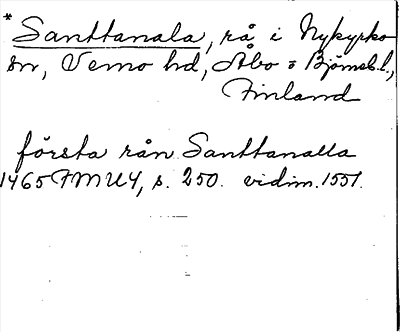 * Santtanala, rå i Nykyrko
sn, Vemo hd, Åbo o Björneb. l.,
Finland
första rån Santtanalla
1465 FMU4, s. 250. vidim. 1551.